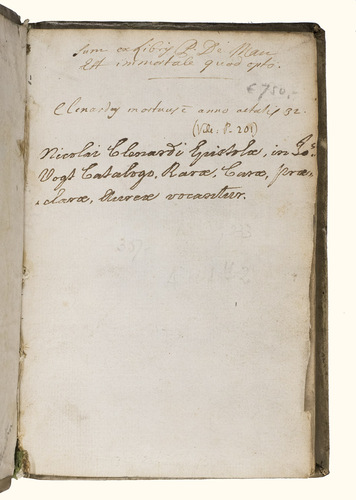 Sum ex libris P. De Mau
Et immortale quod opto.
€ 750,-
Clenardus mortuus ē anno aetatis 32.
(Vide. P. 201)
Nicolai Clenardi Epistolæ, in Jo.
Vogt Catalogo, Raræ, Caræ, præ-
claræ, Aureæ vocantur.